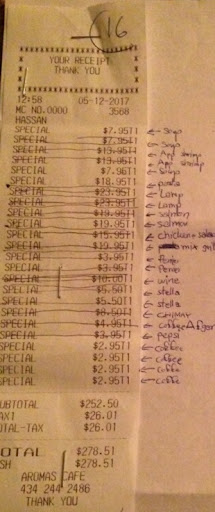 16
YOUR RECEIPT
THANK YOU
12:58 05-12-2017
MC NO.0000 3568
HASSAN
SPECIAL $7.95T1 ← Soup
SPECIAL $7.95T1 ← Soup
SPECIAL $13.95T1 ← App shrimp
SPECIAL $13.95T1 ← App shrimp
SPECIAL $7.96T1 ← Soup
SPECIAL $18.95T1 ← pasta
SPECIAL $23.95T1 ← Lamp
SPECIAL $23.95T1 ← Lamp
SPECIAL $19.95T1 ← salmon
SPECIAL $19.95T1 ← salmon
SPECIAL $15.95T1 ← chicken salad
SPECIAL $19.95T1 ← mix grill
SPECIAL $3.95T1 ←
SPECIAL $3.95T1 ←
SPECIAL $10.00T1 ← wine
SPECIAL $5.50T1 ← stella
SPECIAL $5.50T1 ← stella
SPECIAL $6.50T1 ← CHIMAY
SPECIAL $4.95T1 ← coffee
SPECIAL $3.95T1 ← pepsi
SPECIAL $2.95T1 ← coffee
SPECIAL $2.95T1 ← coffee
SPECIAL $2.95T1 ← coffee
SPECIAL $2.95T1 ← coffee
UBTOTAL $252.50
AX1 $26.01
OTAL-TAX $26.01
OTAL $278.51
SH $278.51
AROMAS CAFE
434 244 2486
THANK YOU